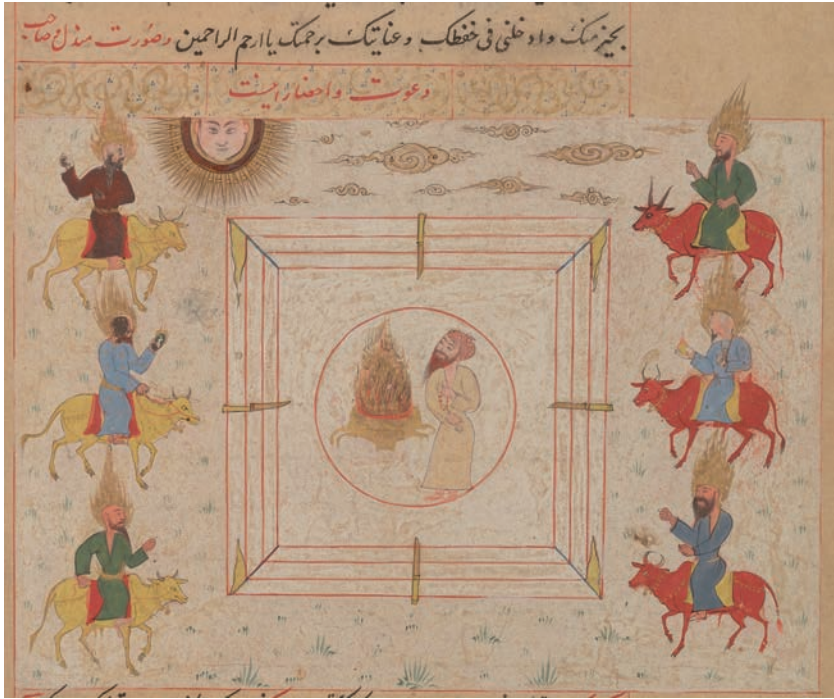 بحیز منک وادخلنی فی حفظک وعنایتک برحمتک یا ارحم الراحمین وصورت مندل وصاحب
دعوت واحضار اینست